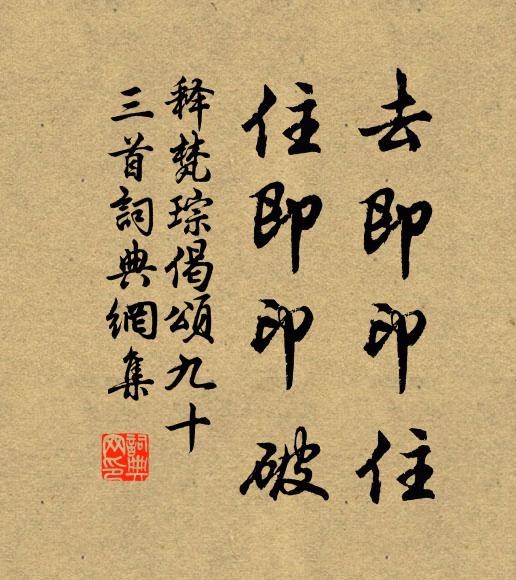 去即印住
住即印破
释梵琮偈頌九十
三首詞典網集
詞典網印